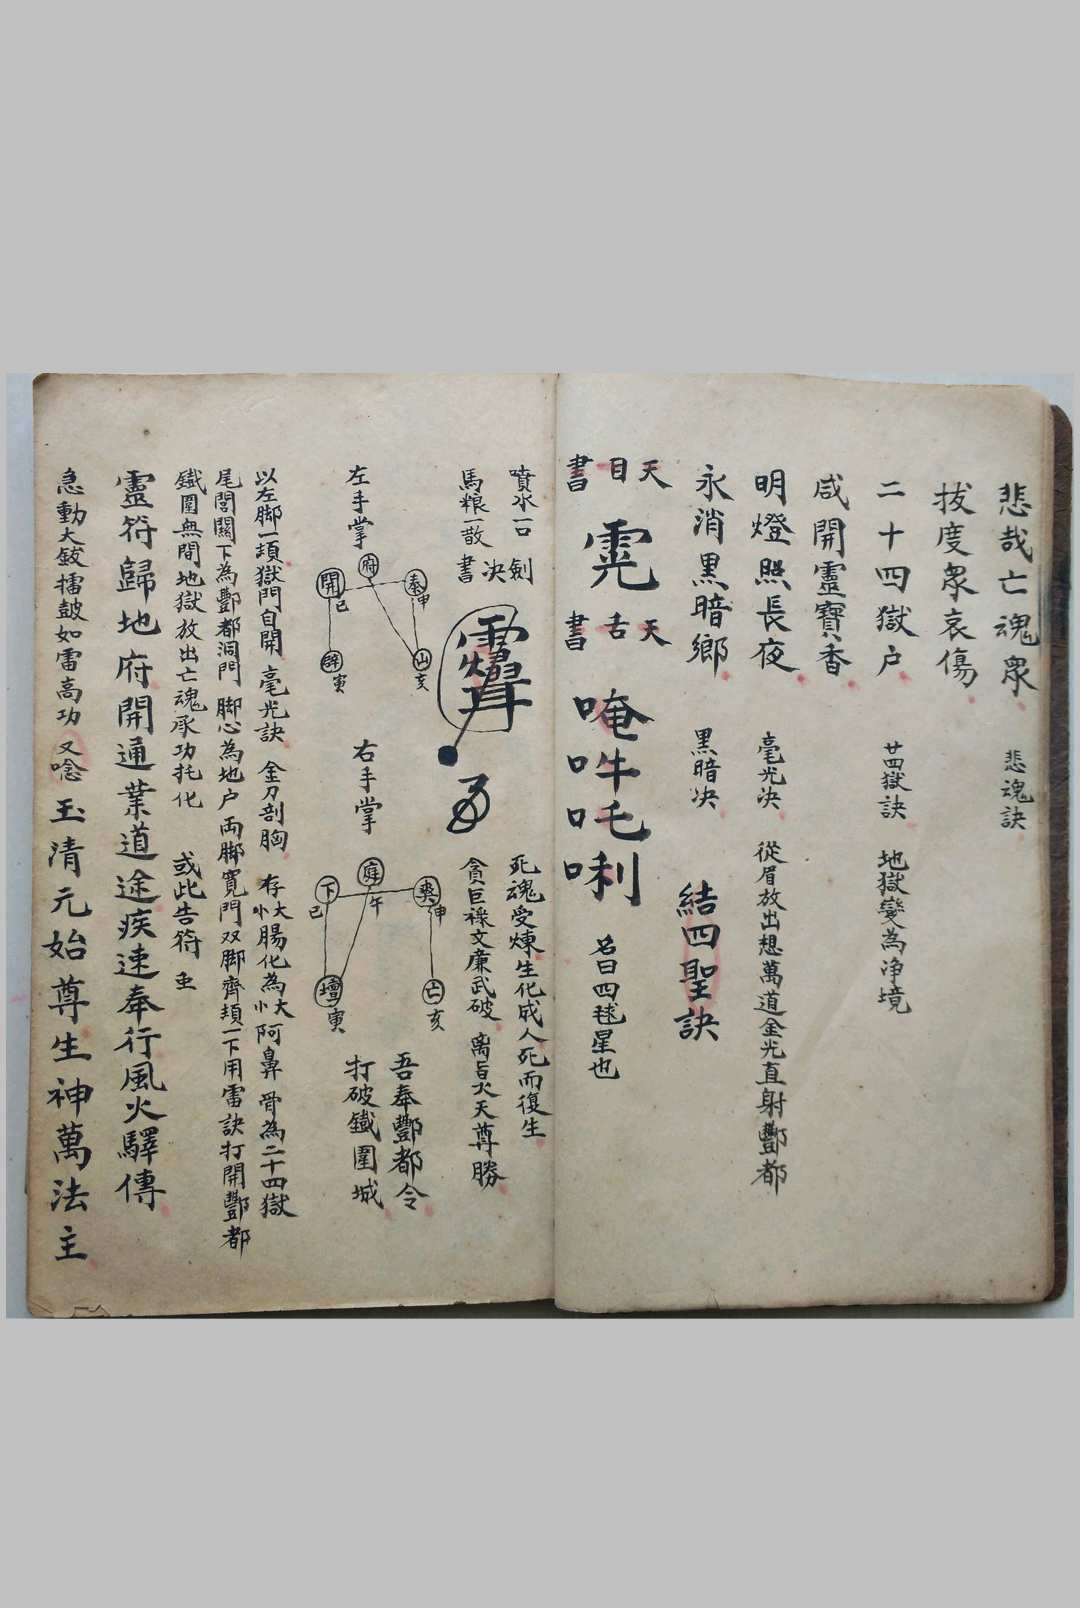 悲哉亡魂眾 悲魂訣
拔度眾哀傷
二十四獄户 廿四獄訣 地獄變為净境
咸開靈寶香
明燈照長夜 毫光决 從眉放出想萬道金光直射酆都
永消黑暗鄉 黑暗决 結四聖訣
天目書
天舌書 唵吽吒唎 名曰四毬星也
噴水一口 劍决 死魂受煉生化成人死而復生
馬粮一散 書 貪巨祿文廉武破 离旨火天尊勝
吾奉酆都令
打破鐵圍城
左手掌
開 巳
府
泰 申
山 亥
寅
右手掌
下 巳
庭 午
申
亡 亥
壇 寅
以左脚一頓獄門自開 毫光訣 金刀剖胸 存大小腸化為大小阿鼻 骨為二十四獄
尾閭關下為酆都洞門 脚心為地户 両脚寬門双脚齊頓一下用雷訣打開酆都
鐵圍無間地獄放出亡魂承功托化 或此告符
靈符歸地府開通業道途疾速奉行風火驛傳
急動大鈸擂鼓如雷高功又唸 玉清元始尊生神萬法主